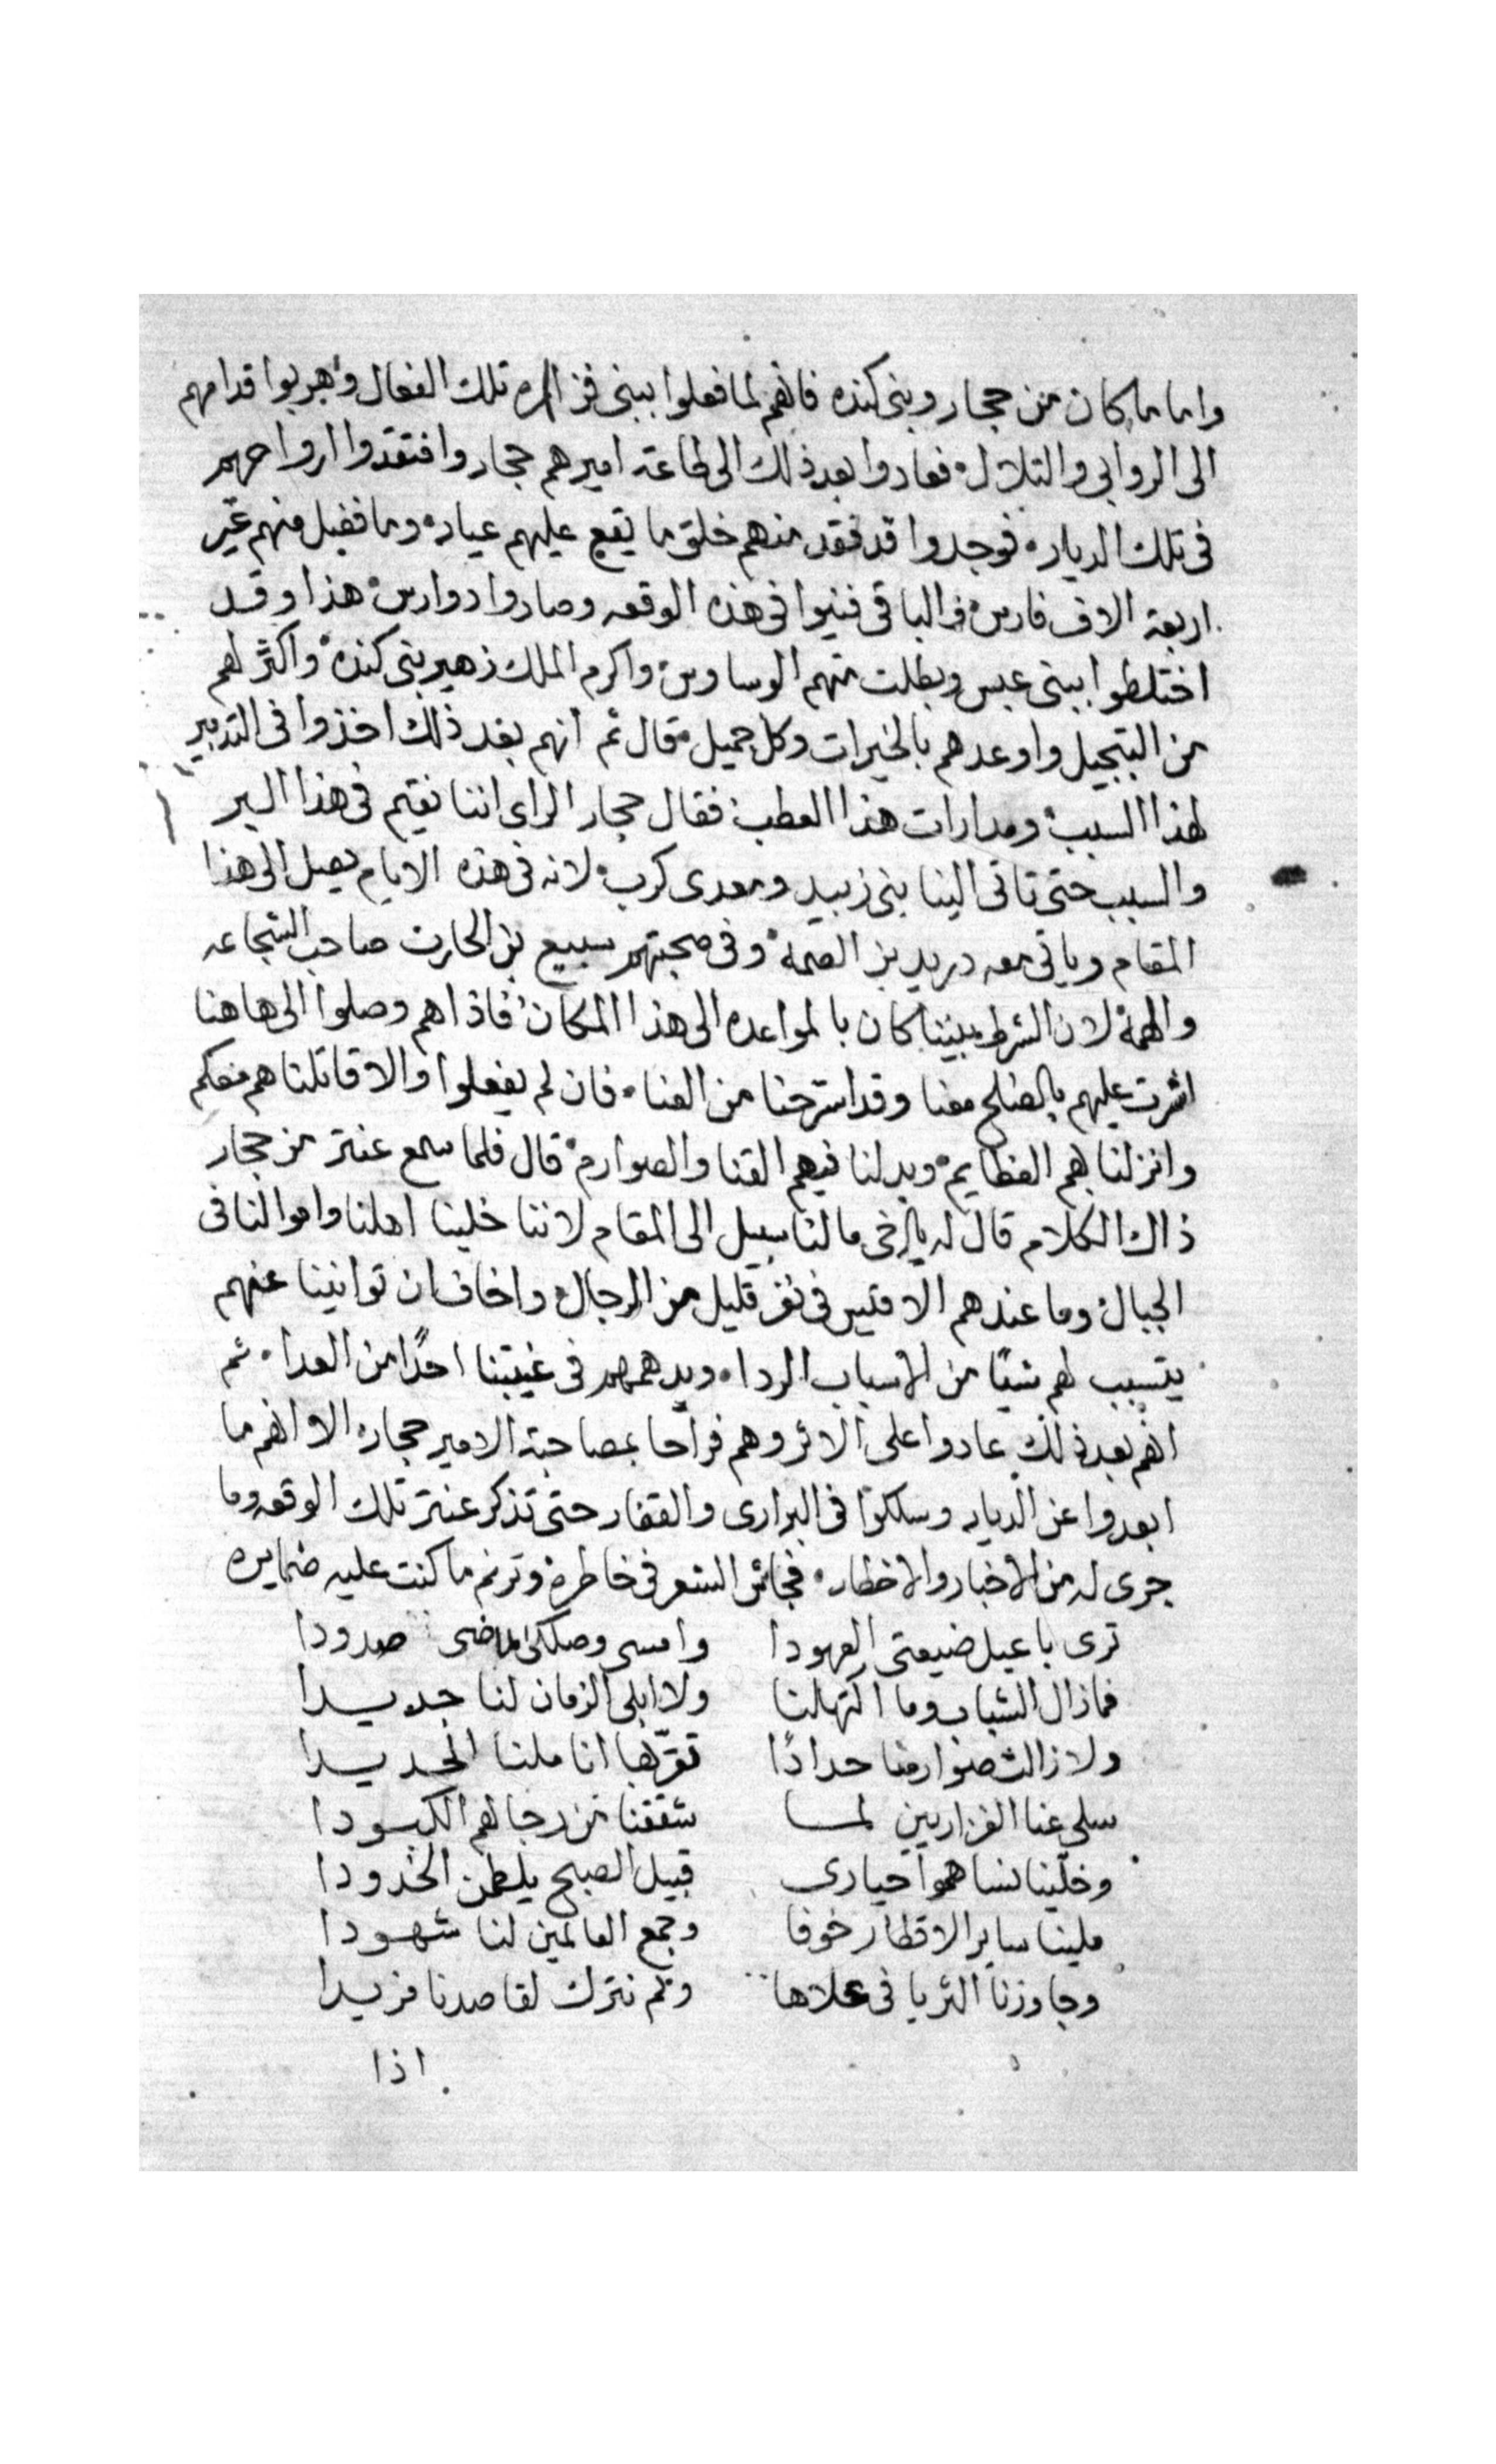 واما ما كان من حجار وبنى كنده فانهم لما فعلوا ببنى فزاره تلك الفعال وهربوا قدامهم
الى الروابى والتلال فعادوا بعد ذلك الى طاعة اميرهم حجار وافتقدوا ارواحهم
فى تلك الديار فوجدوا قد فقد منهم خلق ما يقع عليهم عيار وما فضل منهم غير
اربعة الاف فارس والباقى فنيوا فى هذه الوقعه وصاروا دوارس هذا وقد
اختلطوا ببنى عبس وبطلت منهم الوساوس واكرم الملك زهير بنى كنده واكثر لهم
من التبجيل واوعدهم بالخيرات وكل جميل قال ثم انهم بعد ذلك اخذوا فى التدبير
لهذا السبب ومدارات هذا العطب فقال حجار الراى اننا نقيم فى هذا البر
والسبسب حتى تاتى الينا بنى زبيد ومعدى كرب لانه فى هذه الايام يصل الى هذا
المقام وياتى معه دريد بن الصمة وفى صحبتهم سبيع بن الحارث صاحب الشجاعه
والهمة لان الشرط بيننا كان بالمواعده الى هذا المكان فاذا هم وصلوا الى هاهنا
اشرت عليهم بالصلح معنا وقد استرحنا من العنا فان لم يفعلوا والا قاتلناهم معكم
وانزلنا بهم العظايم وبدلنا فيهم القنا والصوارم قال فلما سمع عنتر من حجار
ذاك الكلام قال له يا اخى ما لنا سبيل الى المقام لاننا خلينا اهلنا واموالنا فى
الجبال وما عندهم الا قيس فى نفر قليل من الرجال واخاف ان توانينا عنهم
يتسبب لهم شيًا من الاسباب الردا ويدهمهم فى غيبتنا احدًا من العدا ثم
انهم بعد ذلك عادوا على الاثر وهم فراحا بمصاحبة الامير حجار الا انهم ما
ابعدوا عن الديار وسلكوا فى البرارى والقفار حتى تذكر عنتر تلك الوقعه وما
جرى له من الاخبار والاخطار فجاش الشعر فى خاطره وترنم ما كنت عليه ضمايره
ترى يا عبل ضيعتى العهودا وامسى وصلكى الماضى صدودا
فما زال الشباب وما اكتهلنا ولا ابلى الزمان لنا جديدا
ولا زالت صوارمنا حدادًا تقدّ بها اناملنا الحديدا
سلى عنا الفزاريين لما شققنا من رجالهم الكبودا
وخلّينا نساهموا حيارى قبيل الصبح يلطمن الخدودا
ملينا ساير الاقطار خوفا وجمع العالمين لنا شهودا
وجاوزنا الثريا فى علاها ولم نترك لقاصدنا فريدا
اذا